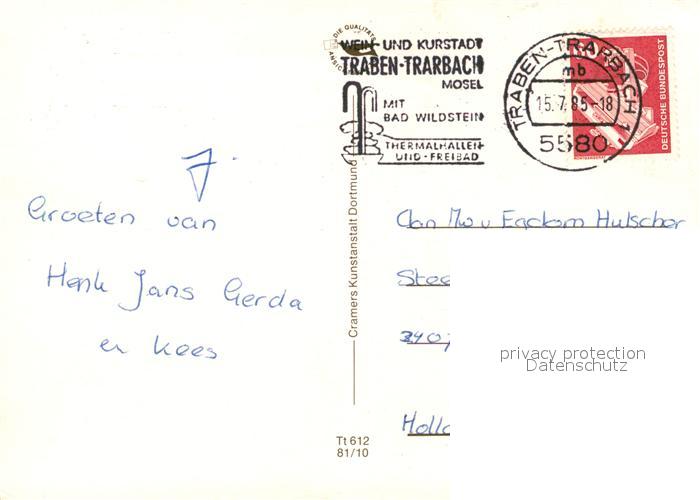 DIE QUALITÄTS
ANSIC
WEIN- UND KURSTADT
TRABEN-TRARBACH
MOSEL
MIT
BAD WILDSTEIN
THERMALHALLEN
UND-FREIBAD
TRABEN-TRARBACH 1
mb
15.7.85-18
5580
DEUTSCHE BUNDESPOST
Groeten van
Henk Jans Gerda
en Kees
Cramers Kunstanstalt Dortmund
Tt 612
81/10
Hulscher
Stee
Holla
privacy protection
Datenschutz